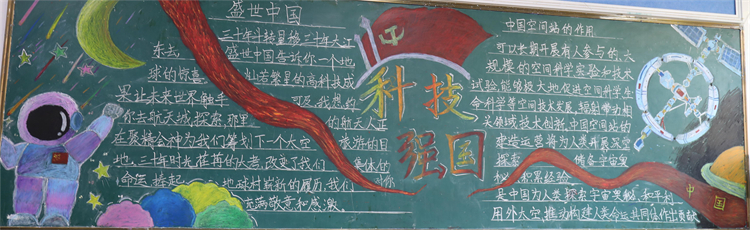 盛世中国
三十年斗转星移三十年大江
东去, 盛世中国告诉你一个地
球的惊喜, 灿若繁星的高科技成
果让未来世界触手可及,我想约
你去航天城,探索,那里的航天人正
在聚精会神为我们筹划下一个太空旅游的目
地,三年时光荏苒的改变了我们集体的
命运,捧起地球村崭新的履历,我们对你
充满敬意和感激.
科技
强国
中国空间站的作用
可以长期开展有人参与的、大
规模的空间科学实验和技术
试验,能够极大地促进空间科学生
命科学等空间技术发展,辐射带动相
关领域技术创新,中国空间站的
建造运营将为人类开展深空
探索 储备宇宙奥
积累经验
是中国为人类探索宇宙奥秘,和平利
用外太空,推动构建人类命运共同体作出贡献
中
国